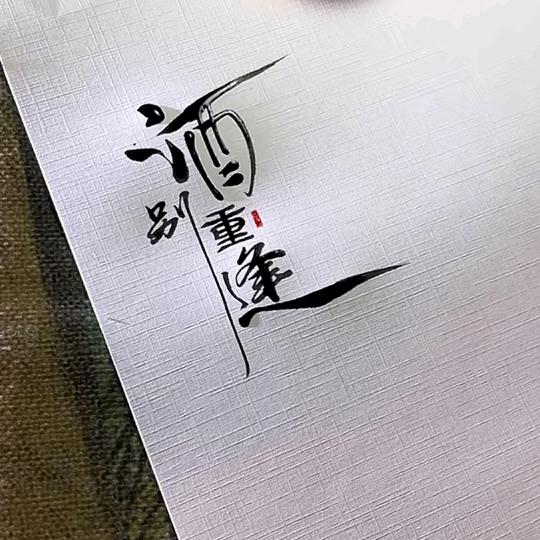 酒
别重逢